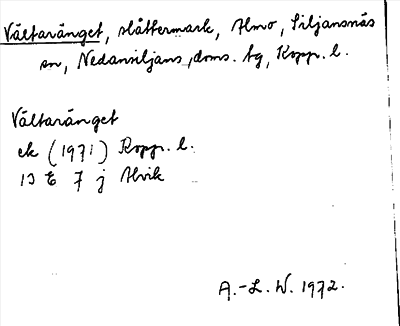 Vältaränget, slåttermark, Almo, Siljansnäs
sn, Nedansiljans doms. tg, Kopp. l.
Vältaränget
ek (1971) Kopp. l.
13 E 7 j Alvik
A.-L. W. 1972.